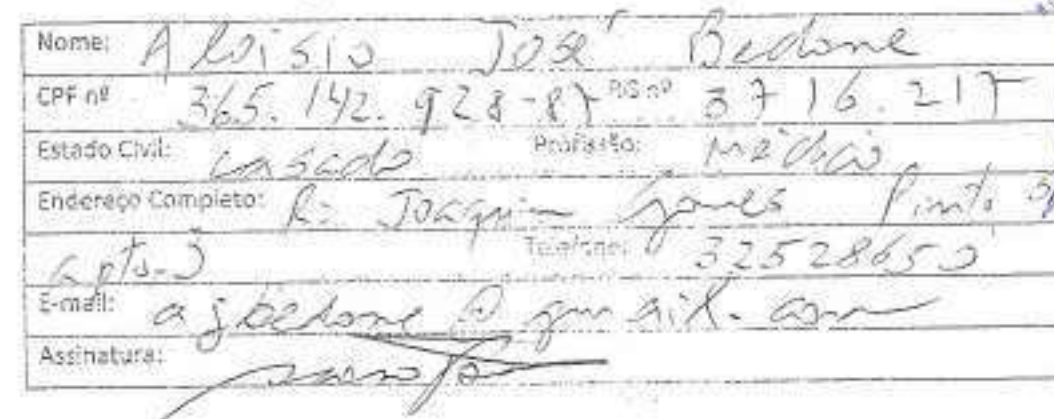 Nome: Aloisio José Bedone
CPF nº 365.142.928-87 RG nº 3716.217
Estado Civil: casado Profissão: médico
Endereço Completo: R: Joaquim Gomes Pinto
apto. Telefone: 32528650
E-mail: ajbedone@gmail.com
Assinatura: